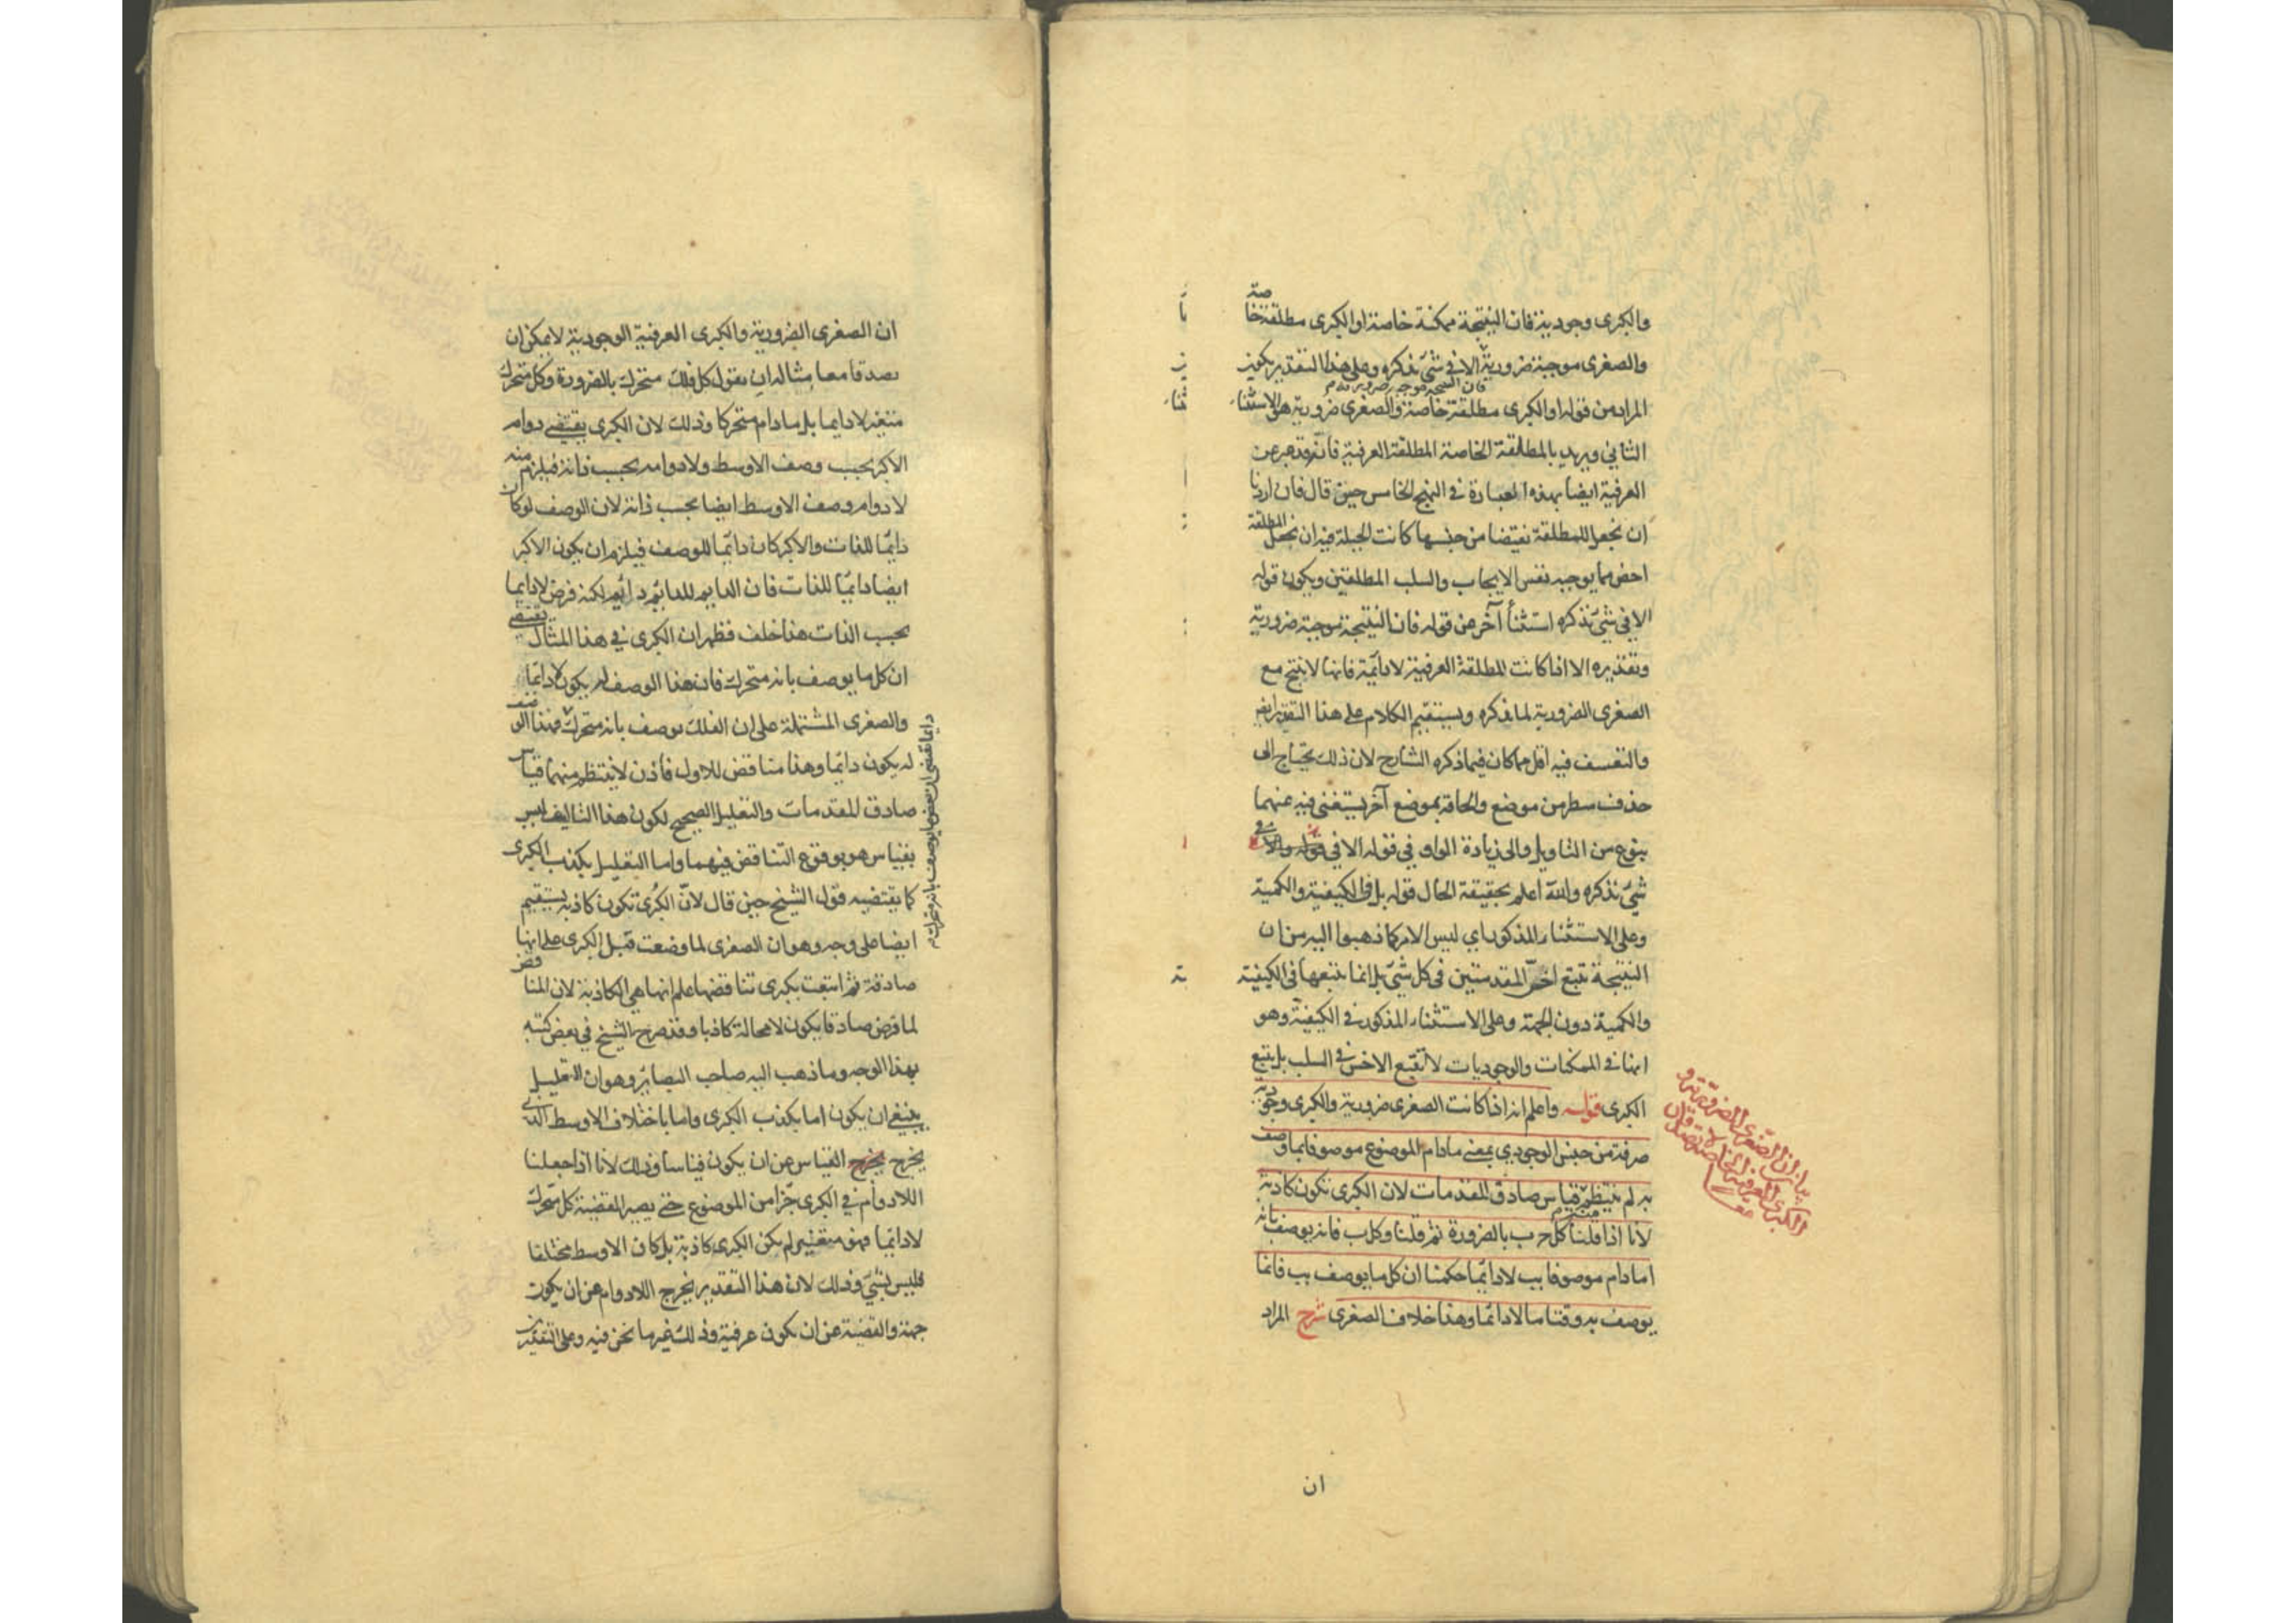 والكبرى وجودية فان النتيجة ممكنة خاصة او الكبرى مطلقة خاصة
والصغرى موجبة ضرورية الا في شئ نذكره وعلى هذا التقدير يكون
فان النتيجة موجبة ضرورية م
المراد من قوله او الكبرى مطلقة خاصة والصغرى ضرورية هو الاستثناء
الثاني ويريد بالمطلقة الخاصة المطلقة العرفية فانه قد عبر عن
العرفية ايضا بهذه العبارة في النهج الخامس حين قال فان اردنا
ان نجعل للمطلقة نقيضا من جنسها كانت الحيلة فيه ان نجعل المطلقة
اخص مما يوجبه نفس الايجاب والسلب المطلقين ويكون قوله
الا في شئ نذكره استثنأ آخر من قوله فان النتيجة موجبة ضرورية
وتقديره الا اذا كانت المطلقة العرفية لا دائمة فانها لا ينتج مع
الصغرى الضرورية لما نذكره ويستقيم الكلام على هذا التقدير ايضا
والتعسف فيه اقل مما كان فيما ذكره الشارح لان ذلك يحتاج الى
حذف سطر من موضع والحاقه بموضع آخر يستغنى فيه عنهما
بنوع من التاويل والى زيادة الواو في قوله الا في قوله والا في
شئ نذكره والله اعلم بحقيقة الحال قوله بل في الكيفية والكمية
وعلى الاستثناء المذكور اي ليس الامر كما ذهبوا اليه من ان
النتيجة تتبع اخس المقدمتين في كل شئ بل انما تتبعها في الكيفية
والكمية دون الجهة وعلى الاستثناء المذكور في الكيفية وهو
انها في الممكنات والوجوديات لا تتبع الاخس في السلب بل يتبع
الكبرى قوله واعلم انه اذا كانت الصغرى ضرورية والكبرى وجودية
صرفة من جنس الوجودي بمعنى مادام الموضوع موصوفا بما وصف
به لم ينتظم منه قياس صادق المقدمات لان الكبرى تكون كاذبة
لانا اذا قلنا كل ج ب بالضرورة ثم قلنا وكل ب فانه يوصف بانه
ا مادام موصوفا بب لا دائما حكمنا ان كل ما يوصف بب فانما
يوصف به وقتا ما لا دائما وهذا خلاف الصغرى شرح المراد
ان
ان الصغرى الضرورية والكبرى العرفية الوجودية لا يمكن ان
يصدقا معا مثاله ان نقول كل فلك متحرك بالضرورة وكل متحرك
متغير لا دايما بل مادام متحركا وذلك لان الكبرى يقتضى دوام
الاكبر بحسب وصف الاوسط ولا دوامه بحسب ذاته فيلزم منه
لا دوام وصف الاوسط ايضا بحسب ذاته لان الوصف لو كان
دائما للذات والاكبر كان دائما للوصف فيلزم ان يكون الاكبر
ايضا دائما للذات فان الدايم للدايم دائم لكنه فرض لا دايما
بحسب الذات هذا خلف فظهر ان الكبرى في هذا المثال تقتضى
ان كل ما يوصف بانه متحرك فان هذا الوصف له يكون لا دائما
والصغرى المشتملة على ان الفلك يوصف بانه متحرك فهذا الوصف
له يكون دائما وهذا مناقض للاول فاذن لا ينتظم منهما قياس
دايما تقتضى ان بعض ما يوصف بانه متحرك م
صادق المقدمات والتعليل الصحيح لكون هذا التاليف ليس
بقياس هو بوقوع التناقض فيهما واما التعليل بكذب الكبرى
كما يقتضيه قول الشيخ حين قال لان الكبرى تكون كاذبة يستقيم
ايضا على وجه وهو ان الصغرى لما وضعت قبل الكبرى على انها
صادقة ثم اتبعت بكبرى تناقضها علم انها هي الكاذبة لان المناقض
لما فرض صادقا يكون لا محالة كاذبا وقد صرح الشيخ في بعض كتبه
بهذا الوجه وما ذهب اليه صاحب البصائر وهو ان التعليل
ينبغي ان يكون اما بكذب الكبرى واما باختلاف الاوسط الذي
يخرج القياس عن ان يكون قياسا وذلك لانا اذا جعلنا
اللادوام في الكبرى جزأ من الموضوع حتى يصير القضية كل متحرك
لا دائما فهو متغير لم يكن الكبرى كاذبة بل كان الاوسط مختلفا
فليس بشئ وذلك لان هذا التقدير يخرج اللادوام عن ان يكون
جهة والقضية عن ان يكون عرفية وذلك غير ما نحن فيه وعلى التقديرين